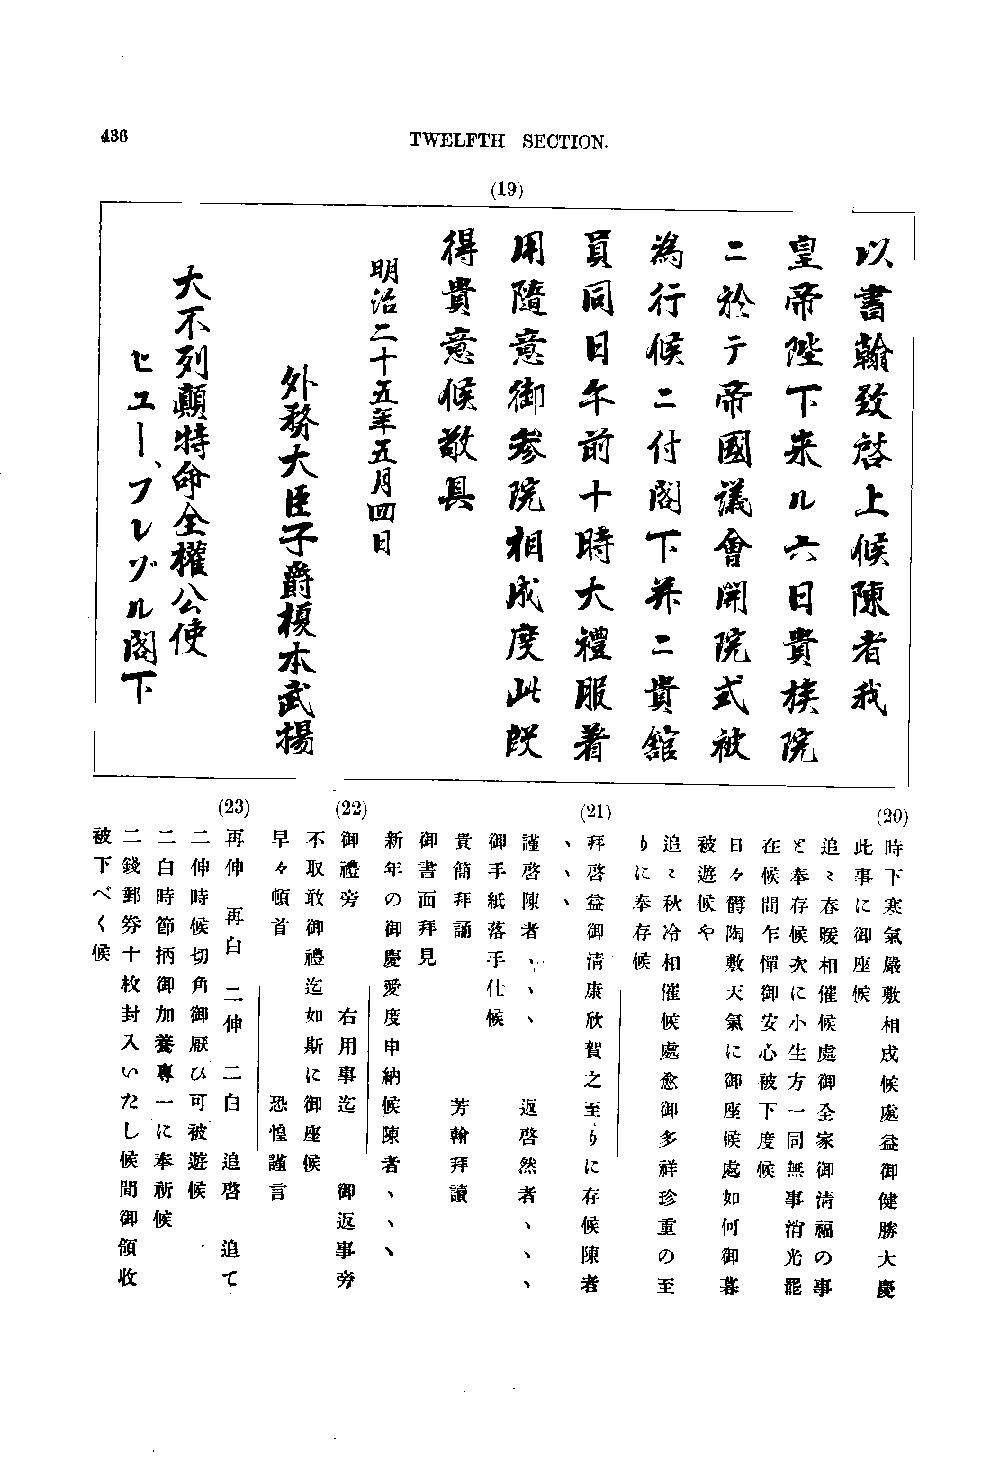 436
TWELFTH SECTION.
(19)
以書翰致啓上候陳者我
皇帝陛下来ル六日貴族院
ニ於テ帝國議會開院式被
為行候ニ付閣下并ニ貴館
員同日午前十時大禮服着
用隨意御参院相成度此段
得貴意候敬具
明治二十五年五月四日
外務大臣子爵榎本武揚
大不列顛特命全權公使
ヒユー、フレヅル閣下
(20)
時下寒氣嚴敷相成候處益御健勝大慶
此事に御座候
追々春暖相催候處御全家御清福の事
と奉存候次に小生方一同無事消光罷
在候間乍憚御安心被下度候
日々欝陶敷天氣に御座候處如何御暮
被遊候や
追々秋冷相催候處愈御多祥珍重の至
りに奉存候
(21)
拜啓益御淸康欣賀之至りに存候陳者
、、、
謹啓陳者、、、 返啓然者、、、
御手紙落手仕候
貴簡拜誦 芳翰拜讀
御書面拜見
新年の御慶愛度申納候陳者、、、
(22)
御禮旁 右用事迄 御返事旁
不取敢御禮迄如斯に御座候
早々頓首 恐惶謹言
(23)
再伸 再白 二伸 二白 追啓 追て
二伸時候切角御厭ひ可被遊候
二白時節柄御加養專一に奉祈候
二錢郵券十枚封入いたし候間御領收
被下べく候